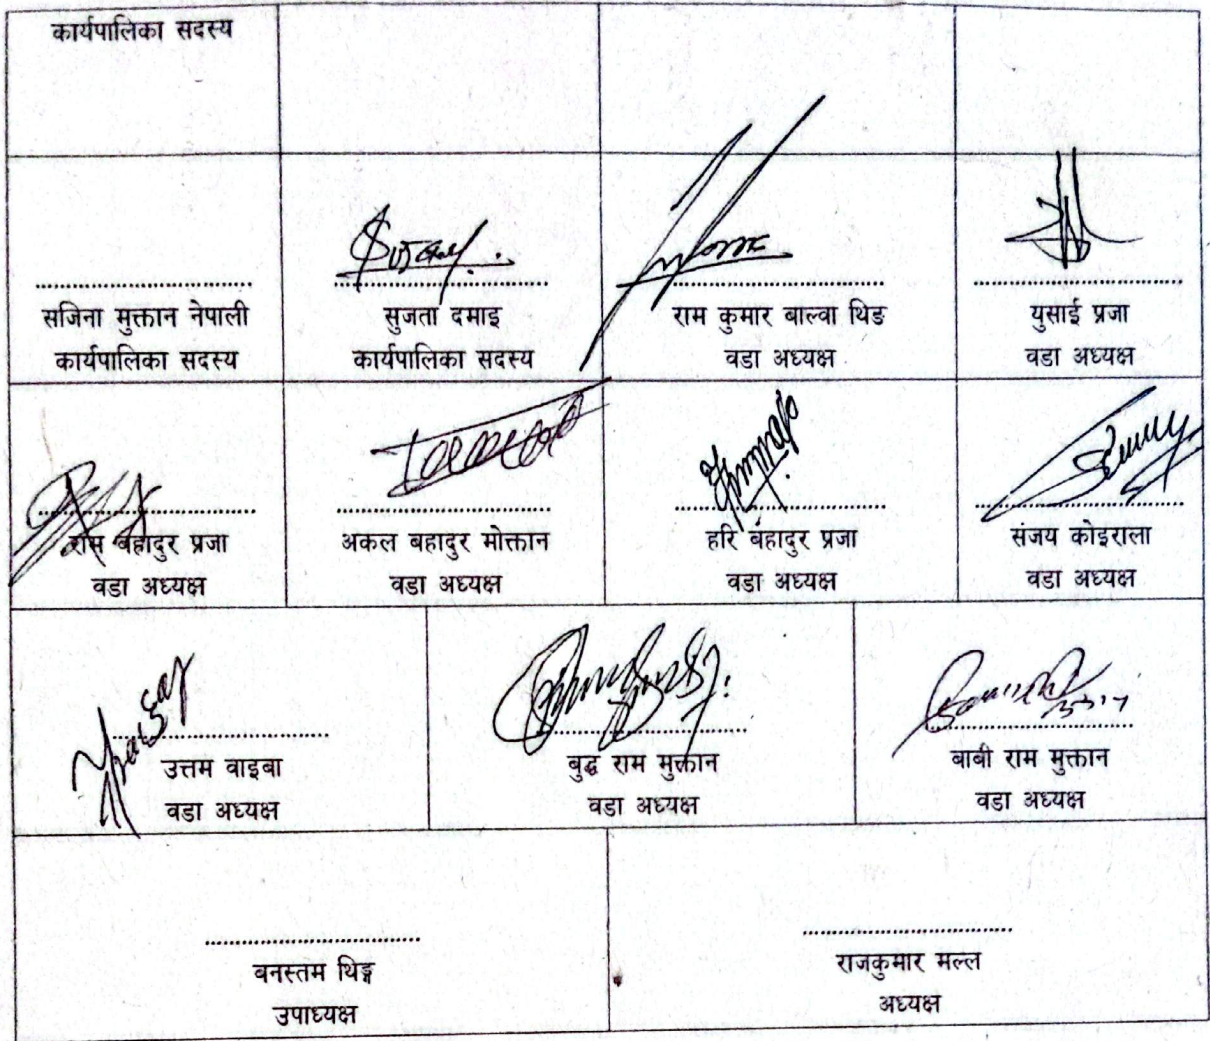 कार्यपालिका सदस्य
सजिना मुक्तान नेपाली
कार्यपालिका सदस्य
सुजता दमाइ
कार्यपालिका सदस्य
राम कुमार बाल्वा थिङ
वडा अध्यक्ष
युसाई प्रजा
वडा अध्यक्ष
राम बहादुर प्रजा
वडा अध्यक्ष
अकल बहादुर मोक्तान
वडा अध्यक्ष
हरि बहादुर प्रजा
वडा अध्यक्ष
संजय कोइराला
वडा अध्यक्ष
उत्तम वाइबा
वडा अध्यक्ष
बुद्ध राम मुक्तान
वडा अध्यक्ष
बाबी राम मुक्तान
वडा अध्यक्ष
बनस्तम थिङ्ग
उपाध्यक्ष
राजकुमार मल्ल
अध्यक्ष